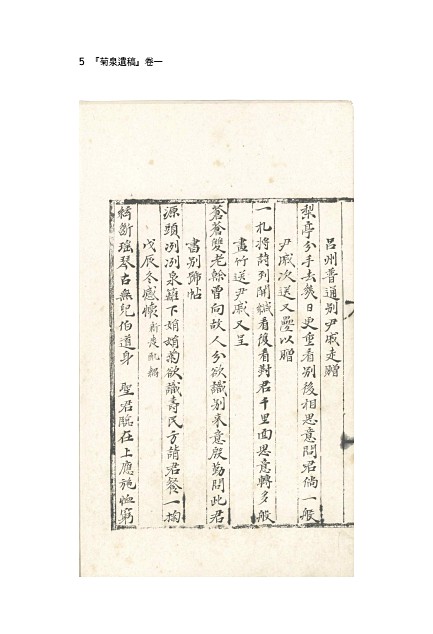 5 『菊泉遺稿』卷一
呂州普通別尹戚走贈
梨亭分手去幾日更重看別後相思意問君倘一般
尹戚次送又疊以贈
一札將詩到開緘看後看對君千里面思意轉多般
畫竹送尹戚又呈
蒼蒼雙老幹曾向故人分欲識別來意殷勤問此君
書別號帖
源頭冽冽泉籬下娟娟菊欲識壽民方請君餐一掬
戊辰冬感懷
綺斷瑤琴古無兒伯道身 聖君臨在上應施恤窮